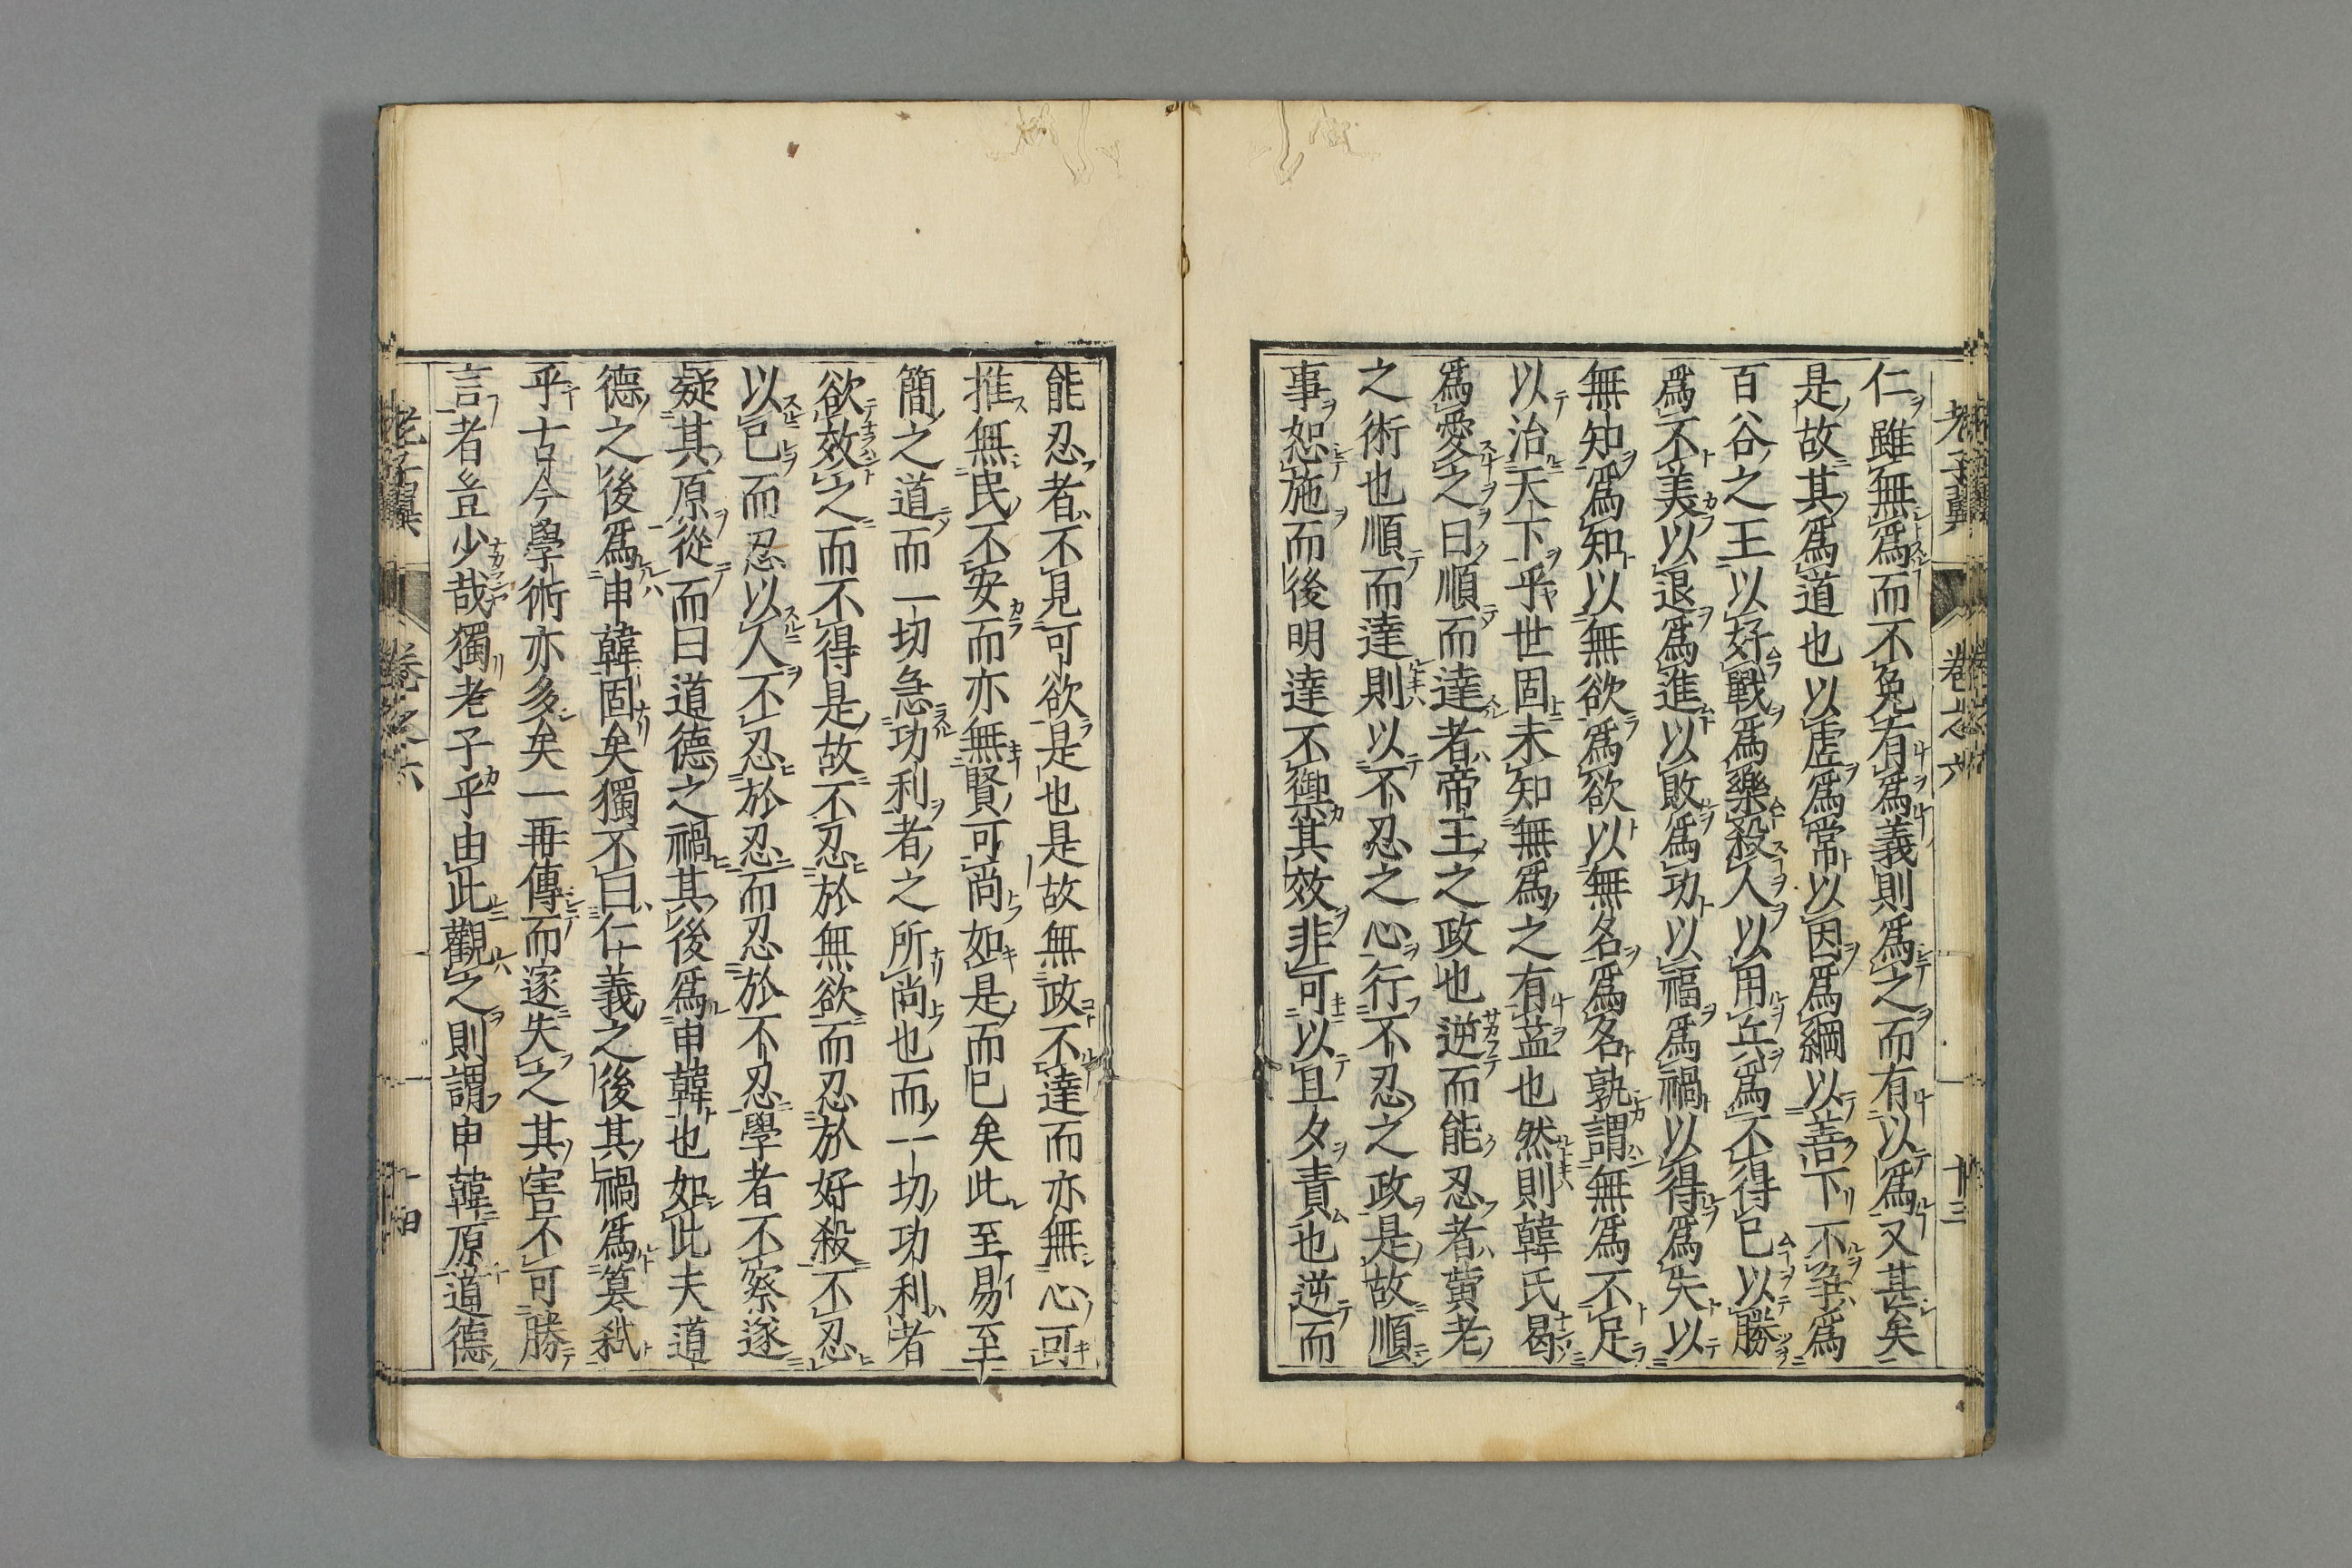 老子翼 卷之六 十三
仁雖無爲而不免有爲義則爲之而有以爲又甚矣
是故其爲道也以虛爲常以因爲綱以善下不爭爲
百谷之王以好戰爲樂殺人以用兵爲不得已以勝
爲不美以退爲進以敗爲功以福爲禍以得爲失以
無知爲知以無欲爲欲以無名爲名孰謂無爲不足
以治天下乎世固未知無爲之有益也然則韓氏曷
爲愛之曰順而達者帝王之政也逆而能忍者黄老
之術也順而達則以不忍之心行不忍之政是故順
事恕施而後明達不禦其效非可以旦夕責也逆而
能忍者不見可欲是也是故無政不達而亦無心可
推無民不安而亦無賢可尚如是而已矣此至易至
簡之道而一切急功利者之所尚也而一切功利者
欲效之而不得是故不忍於無欲而忍於好殺不忍
以已而忍以人不忍於忍而忍於不忍學者不察遂
疑其原從而曰道德之禍其後爲申韓也如此夫道
德之後爲申韓固矣獨不曰仁義之後其禍爲簒弑
乎古今學術亦多矣一再傳而遂失之其害不可勝
言者豈少哉獨老子乎由此觀之則謂申韓原道德
老子翼 卷之六 十四